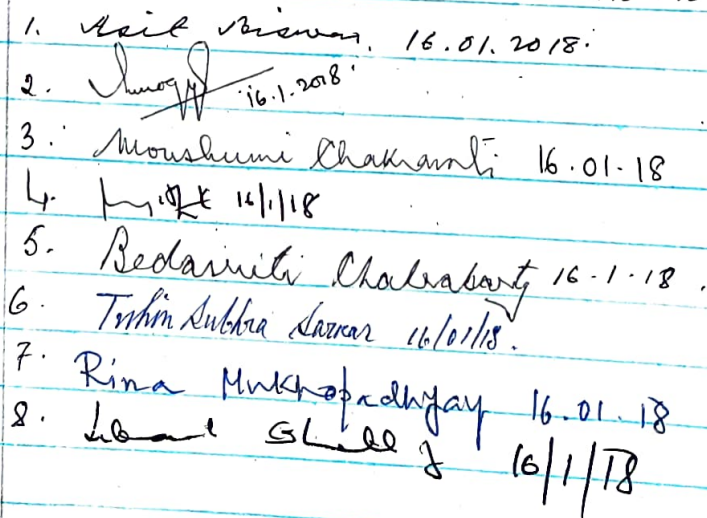 1. Asit Biswas. 16.01.2018.
2. 16.1.2018.
3. Moushumi Chakravarti 16.01.18
4. 16/1/18
5. Bedatrititi Chakrabarty 16.1.18.
6. Tuhin Subhra Sarkar 16/01/18.
7. Rina Mukhopadhyay 16.01.18
8. 16/1/18